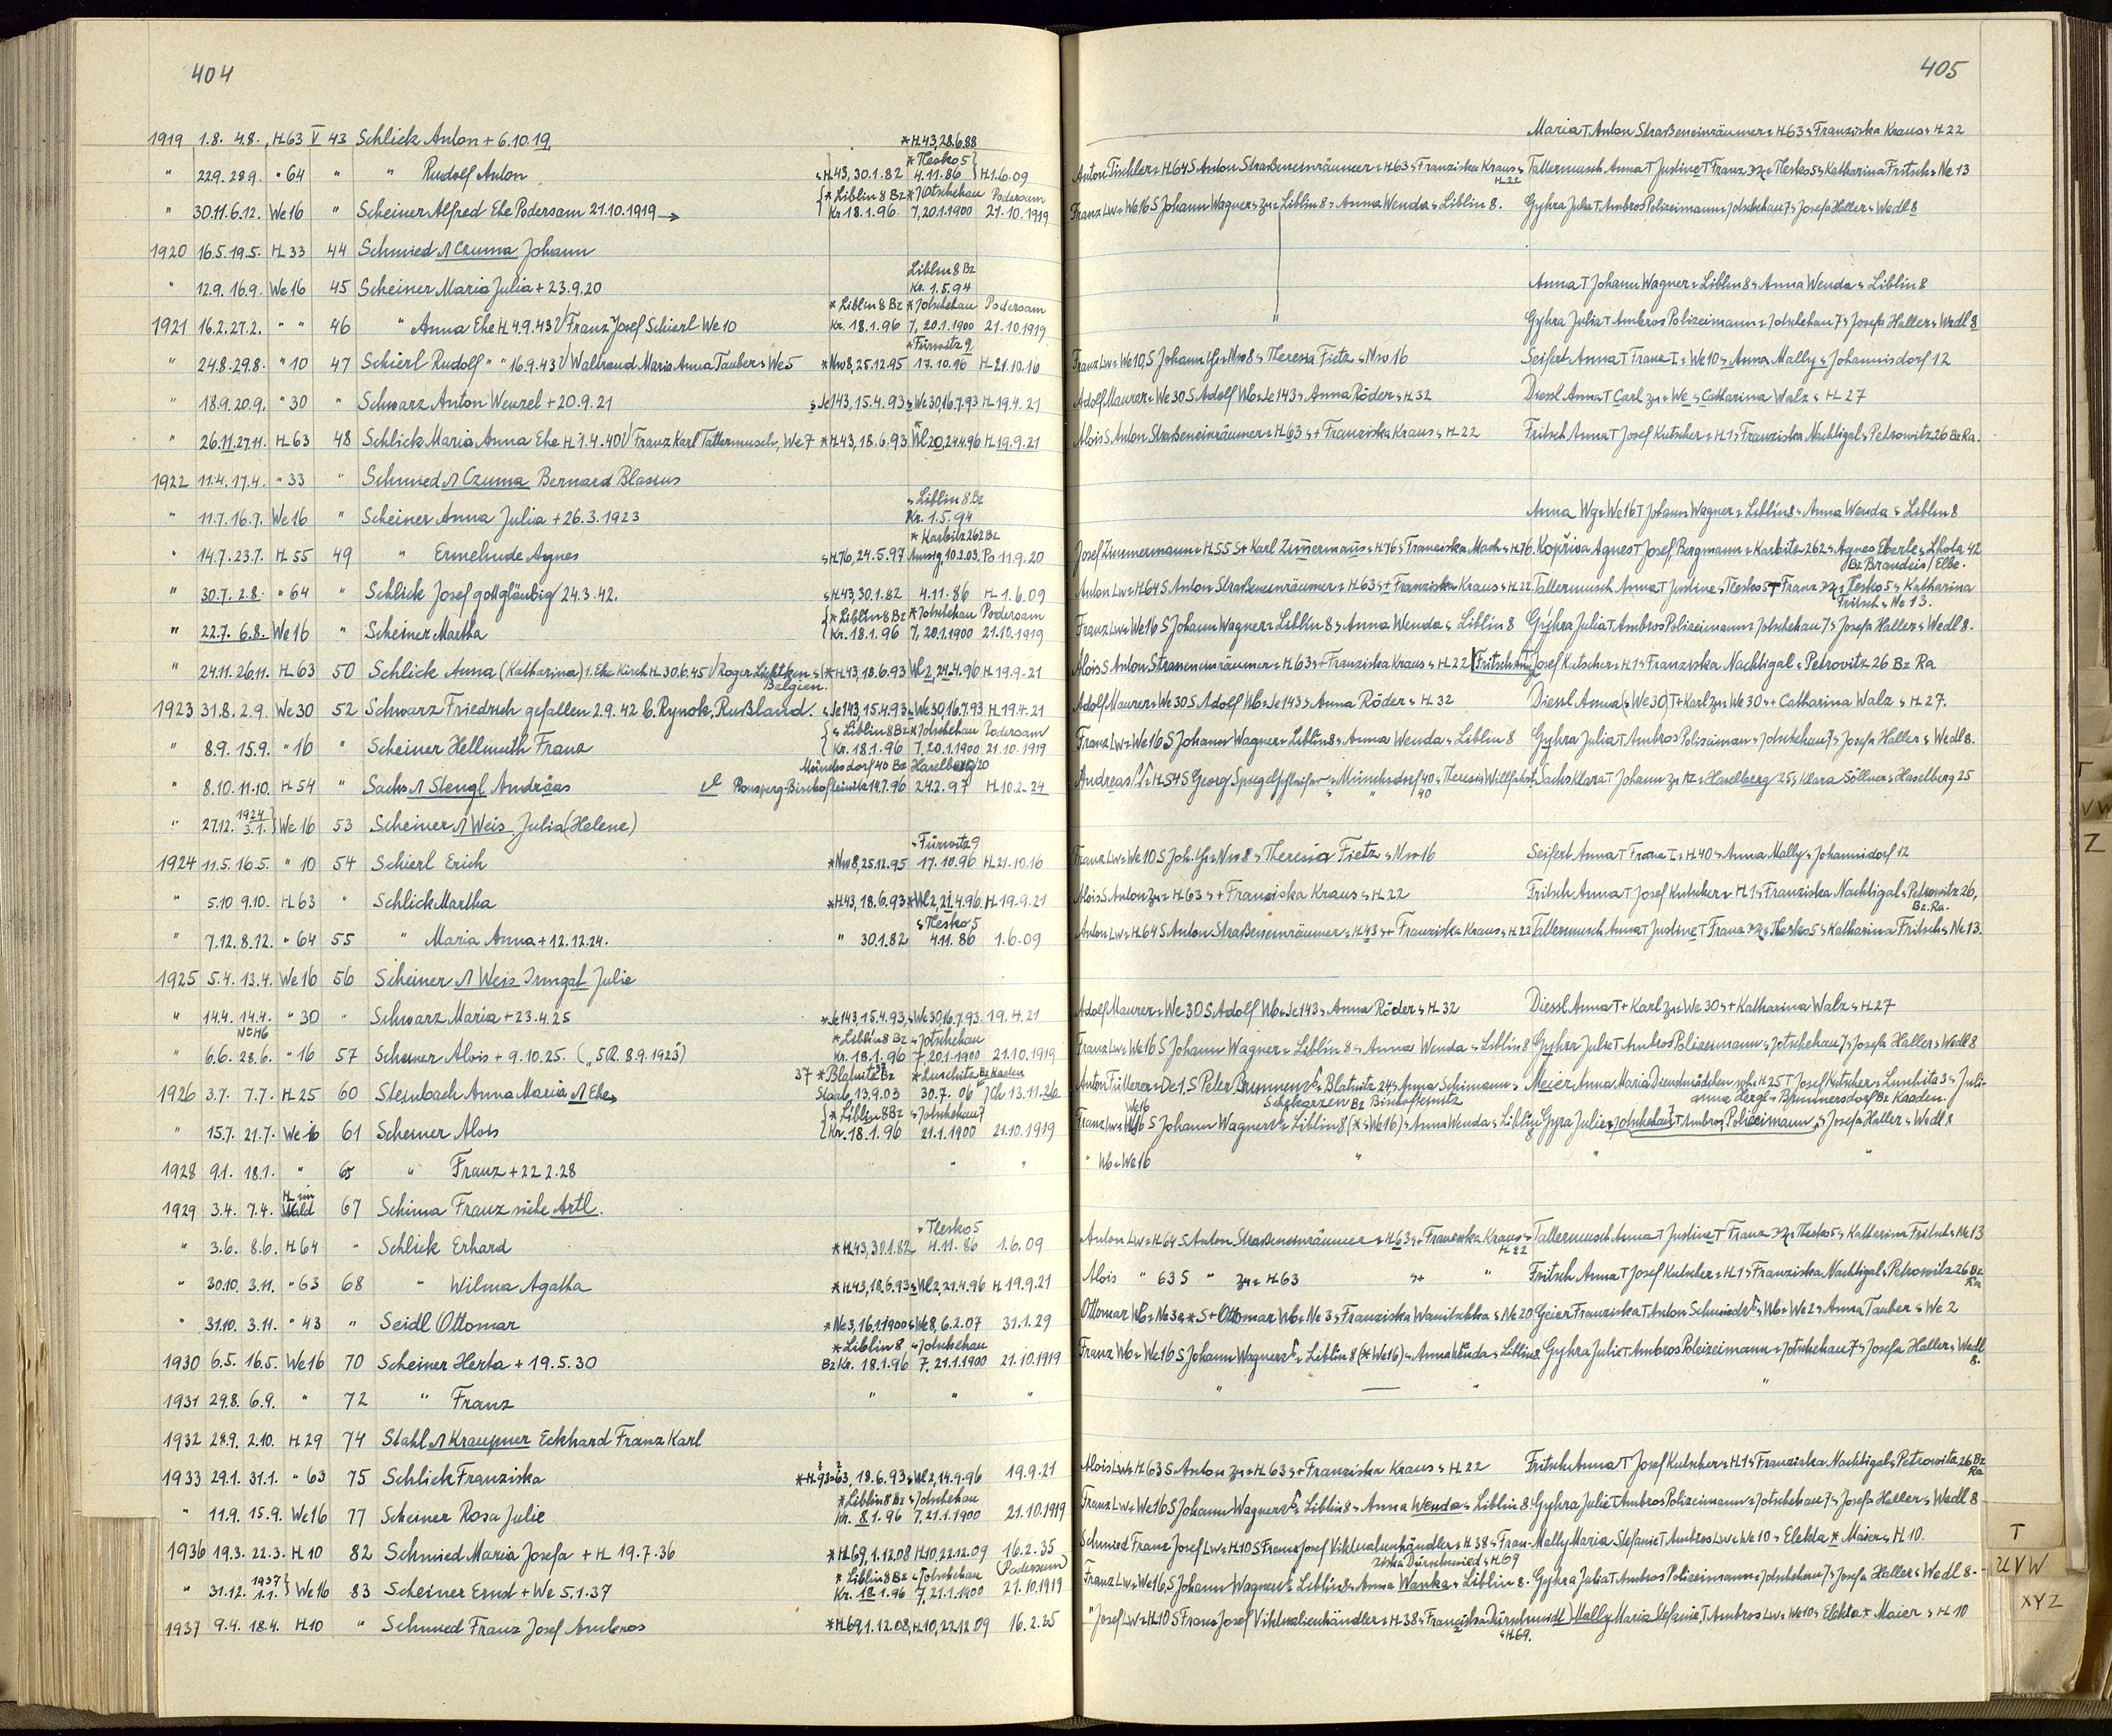 404
1919 1.8. 4.8. H 63 V 43 Schlick Anton + 6.10.19 *H43, 28.6.88
" 22.9. 28.9. " 64 " " Rudolf Anton H43, 30.1.82 *Tlesko 5 4.11.86 H 1.6.09
" 30.11. 6.12. We 16 " Scheiner Alfred Ehe Podersam 21.10.1919 → *Liblin 8 Bz Kr. 18.1.96 *Jotschehau 7, 20.1.1900 Podersam 21.10.1919
1920 16.5. 19.5. H 33 44 Schmied Czuma Johann
" 12.9. 16.9. We 16 45 Scheiner Maria Julia + 23.9.20 Liblin 8 Bz Kr. 1.5.94
1921 16.2. 27.2. " " 46 " Anna Ehe H 4.9.43 Franz Josef Schierl We 10 *Liblin 8 Bz Kr. 18.1.96 *Jotschehau 7, 20.1.1900 Podersam 21.10.1919
" 24.8. 29.8. " 10 47 Schierl Rudolf " " 16.9.43 Waltraud Maria Anna Tauber We 5 *Nw 8, 25.12.95 *Fürwitz 9 17.10.96 H 21.10.16
" 18.9. 20.9. " 30 " Schwarz Anton Wenzel + 20.9.21 Je 143, 15.4.93 We 30, 16.7.93 H 19.4.21
" 26.11. 27.11. H 63 48 Schlick Maria Anna Ehe H 1.4.40 Franz Karl Tattermusch, We 7 *H43, 18.6.93 Wl 20, 24.4.96 H 19.9.21
1922 11.4. 17.4. " 33 " Schmied Czuma Bernard Blasius
" 11.7. 16.7. We 16 " Scheiner Anna Julia + 26.3.1923 Liblin 8 Bz Kr. 1.5.94
" 14.7. 23.7. H 55 49 " Ermelinde Agnes H76, 24.5.97 *Karbitz 262 Bz Aussig, 10.2.03. Po 11.9.20
" 30.7. 2.8. " 64 " Schlick Josef gottgläubig 24.3.42. H43, 30.1.82 4.11.86 H 1.6.09
" 22.7. 6.8. We 16 " Scheiner Martha *Liblin 8 Bz Kr. 18.1.96 *Jotschehau 7, 20.1.1900 Podersam 21.10.1919
" 24.11. 26.11. H 63 50 Schlick Anna (Katharina) 1. Ehe Kirch H 30.6.45 Roger Belgien. *H43, 18.6.93 Wl 2, 24.4.96 H 19.9.21
1923 31.8. 2.9. We 30 52 Schwarz Friedrich gefallen 2.9.42 b. Rynok, Rußland. Je 143, 15.4.93 We 30, 16.7.93 H 19.4.21
" 8.9. 15.9. " 16 " Scheiner Hellmuth Franz Liblin 8 Bz Kr. 18.1.96 *Jotschehau 7, 20.1.1900 Podersam 21.10.1919
" 8.10. 11.10. H 54 " Sachs Stengl Andräas Münchsdorf 40 Bz Ronsperg-Bischofteinitz 14.7.96 Haselberg 24.2.97 H 10.2.24
" 27.12. 1924 3.1. We 16 53 Scheiner Weis Julia (Helene)
1924 11.5. 16.5. " 10 54 Schierl Erich *Nw 8, 25.12.95 Fürwitz 9 17.10.96 H 21.10.16
" 5.10 9.10. H 63 " Schlick Martha *H43, 18.6.93 *Wl 2, 21.4.96 H 19.9.21
" 7.12. 8.12. " 64 55 " Maria Anna + 12.12.24. " 30.1.82 Tlesko 5 4.11.86 1.6.09
1925 5.4. 13.4. We 16 56 Scheiner Weis Irmgat Julie
" 14.4. 14.4. " 30 " Schwarz Maria + 23.4.25 Je 143, 15.4.93, We 30, 16.7.93. 19.4.21
" 6.6. 28.6. " 16 57 Scheiner Alois + 9.10.25. *Liblin 8 Bz Kr. 18.1.96 Jotschehau 7 20.1.1900 21.10.1919
1926 3.7. 7.7. H 25 60 Steinbach Anna Maria Ehe 37 *Blatnitz Bz Staab, 13.9.03 *Luschitz Bz Kaaden 30.7.06 13.11.26
" 15.7. 21.7. We 16 61 Scheiner Alois *Liblin 8 Bz Kr. 18.1.96 Jotschehau 7 21.1.1900 21.10.1919
1928 9.1. 18.1. " 65 " Franz + 22.2.28 " " "
1929 3.4. 7.4. H im Wald 67 Schima Franz siehe Artl.
" 3.6. 8.6. H 64 " Schlick Erhard *H43, 30.1.82 Tlesko 5 4.11.86 1.6.09
" 30.10. 3.11. " 63 68 " Wilma Agatha *H43, 18.6.93 Wl 2, 21.4.96 H 19.9.21
" 31.10. 3.11. " 43 " Seidl Ottomar *Ne 3, 16.1.1900 We 8, 6.2.07 31.1.29
1930 6.5. 16.5. We 16 70 Scheiner Herta + 19.5.30 *Liblin 8 Bz Kr. 18.1.96 Jotschehau 7, 21.1.1900 21.10.1919
1931 29.8. 6.9. " 72 " Franz " " "
1932 28.9. 2.10. H 29 74 Stahl Kraupner Eckhard Franz Karl
1933 29.1. 31.1. " 63 75 Schlick Franziska 18.6.93 Wl 2, 14.9.96 19.9.21
" 11.9. 15.9. We 16 77 Scheiner Rosa Julie *Liblin 8 Bz Kr. 8.1.96 Jotschehau 7, 21.1.1900 21.10.1919
1936 19.3. 22.3. H 10 82 Schmied Maria Josefa + H 19.7.36 *H69, 1.12.08 H10, 22.12.09 16.2.35
" 31.12. 1937 1.1. We 16 83 Scheiner Ernd + We 5.1.37 *Liblin 8 Bz Kr. 18.1.96 Jotschehau 7, 21.1.1900 (Podersam) 21.10.1919
1937 9.4. 18.4. H 10 " Schmied Franz Josef Ambros *H69, 1.12.08, H10, 22.12.09 16.2.35
405
Maria T Anton Straßeneinräumer H63 Franziska Kraus H22
Anton Tischler H64 S Anton Straßeneinräumer H63 Franziska Kraus H22 Tattermusch Anna T Justine T Franz Tlesko 5 Katharina Fritsch Ne 13
Franz Lw We16 S Johann Wagner Liblin 8 Anna Wenda Liblin 8. Gyhra Julia T Ambros Polizeimann Jotschehau 7 Josefa Haller Wedl 8
Anna T Johann Wagner Liblin 8 Anna Wenda Liblin 8
" Gyhra Julia T Ambros Polizeimann Jotschehau 7 Josefa Haller Wedl 8
Franz Lw We10, S Johann Nw 8 Theresia Fietz Nw 16 Seifert Anna T Franz We10 Anna Mally Johannisdorf 12
Adolf Maurer We30 S Adolf Wb Je 143 Anna Röder H32 Diessl Anna T Carl We Catharina Walz H27
Alois S Anton Straßeneinräumer H63 + Franziska Kraus H22 Fritsch Anna T Josef Kutscher H1 Franziska Nachtigal Petrowitz 26 Bz Ra.
Anna Wg We16 T Johann Wagner Liblin 8 Anna Wenda Liblin 8
Josef Zimmermann H55 S + Karl Zimermann H76 Franziska Mach H76. Kopřiva Agnes T Josef Bergmann Karbitz 262 Agnes Eberle Lhota 42 Bz Brandeis/Elbe.
Anton Lw H64 S Anton Straßeneinräumer H63 + Franziska Kraus H22 Tattermusch Anna T Justine Tlesko 5 T Franz Tlesko 5 Katharina Fritsch Ne 13.
Franz Lw We16 S Johann Wagner Liblin 8 Anna Wenda Liblin 8 Gyhra Julia T Ambros Polizeimann Jotschehau 7 Josefa Haller Wedl 8.
Alois S Anton Strasseneinräumer H63 + Franziska Kraus H22 Fritsch Josef Kutscher H1 Franziska Nachtigal Petrovitz 26 Bz Ra
Adolf Maurer We30 S Adolf Wb Je143 Anna Röder H32 Diessl Anna (We30) T + Karl We30 + Catharina Walz H27.
Franz Lw We16 S Johann Wagner Liblin 8 Anna Wenda Liblin 8 Gyhra Julia T Ambros Polizeiman Jotschehau 7 Josefa Haller Wedl 8.
Andreas H54 S Georg Spiegelschleifer Münchsdorf 40 Theresia Sachs Klara T Johann Haselberg 25 Klara Söllner Haselberg 25
Franz Lw We10 S Joh. Nw 8 Theresia Fietz Nw 16 Seifert Anna T Franz H40 Anna Mally Johannisdorf 12
Alois S Anton H63 + Franziska Kraus H22 Fritsch Anna T Josef Kutscher H1 Franziska Nachtigal Petrowitz 26, Bz. Ra.
Anton Lw H64 S Anton Straßeneinräumer H43 + Franziska Kraus H22 Tattermusch Anna T Justine T Franz Tlesko 5 Katharina Fritsch Ne 13.
Adolf Maurer We30 S Adolf Wb Je143 Anna Röder H32 Diessl Anna T + Karl We30 + Katharina Walz H27
Franz Lw We16 S Johann Wagner Liblin 8 Anna Wenda Liblin 8 Gyhra Julie T Ambros Polizeimann Jotschehau 7 Josefa Haller Wedl 8
Anton Fütterer De 1. S Peter Brunnen Blatnitz 24 Anna Schimann Bz Bischofteinitz Meier Anna Maria Dienstmädchen H25 T Josef Kutscher Luschitz 3 Juli- anna Brunnersdorf Bz Kaaden.
Franz Lw We16 S Johann Wagner Liblin 8 (* We16) Anna Wenda Liblin 8 Gyra Julie Jotschehau 7 T Ambros Polizeimann Josefa Haller Wedl 8
" Wb We16 " " "
Anton Lw H64 S Anton Straßeneinräumer H63 + Franziska Kraus H22 Tattermusch Anna T Justine T Franz Tlesko 5 Katharina Fritsch Ne 13
Alois " 63 S " H63 + " Fritsch Anna T Josef Kutscher H1 Franziska Nachtigal Petrowitz 26 Bz Ra
Ottomar Wb Ne 3 * S + Ottomar Wb Ne 3 Franziska Wanitschka Ne 20 Geier Franziska T Anton Schmied Wb We 2 Anna Tauber We 2
Franz Wb We16 S Johann Wagner Liblin 8 (* We16) Anna Wenda Liblin 8. Gyhra Julie T Ambros Poleizeimann Jotschehau 7 Josefa Haller Wedl 8.
" — " "
Alois Lw H63 S Anton H63 + Franziska Kraus H22 Fritsch Anna T Josef Kutscher H1 Franziska Nachtigal Petrowitz 26 Bz Ra
Franz Lw We16 S Johann Wagner Liblin 8 Anna Wenda Liblin 8. Gyhra Julie T Ambros Polizeimann Jotschehau 7 Josefa Haller Wedl 8
Schmied Franz Josef Lw H10 S Franz Josef Viktualienhändler H38 Fran- ziska Dürschmied H69 Mally Maria Stefanie T Ambros Lw We10 Elekta * Maier H10.
Franz Lw We16, S Johann Wagner Liblin 8 Anna Wanka Liblin 8. Gyhra Julia T Ambros Polizeimann Jotschehau 7 Josefa Haller Wedl 8.
" Josef Lw H10 S Franz Josef Viktualienhändler H38 Franziska Dürschmidt H69. Mally Maria Stefanie, T Ambros Lw We10 Elekta * Maier H10
T
VW
Z
T
UVW
XYZ